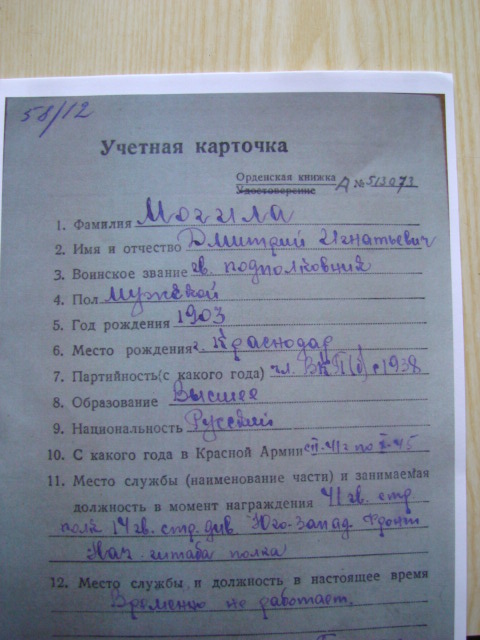 58/12
Учетная карточка
Орденская книжка
Удостоверение А № 513073
1. Фамилия Могила
2. Имя и отчество Дмитрий Игнатьевич
3. Воинское звание гв. подполковник
4. Пол мужской
5. Год рождения 1903
6. Место рождения г. Краснодар
7. Партийность (с какого года) чл. ВКП(б) с 1938
8. Образование Высшее
9. Национальность Русский
10. С какого года в Красной Армии с 41 г по 45
11. Место службы (наименование части) и занимаемая
должность в момент награждения 41 гв. стр
полк 14 гв. стр. див. Юго-Запад. Фронт
Нач. штаба полка
12. Место службы и должность в настоящее время
Временно не работает.